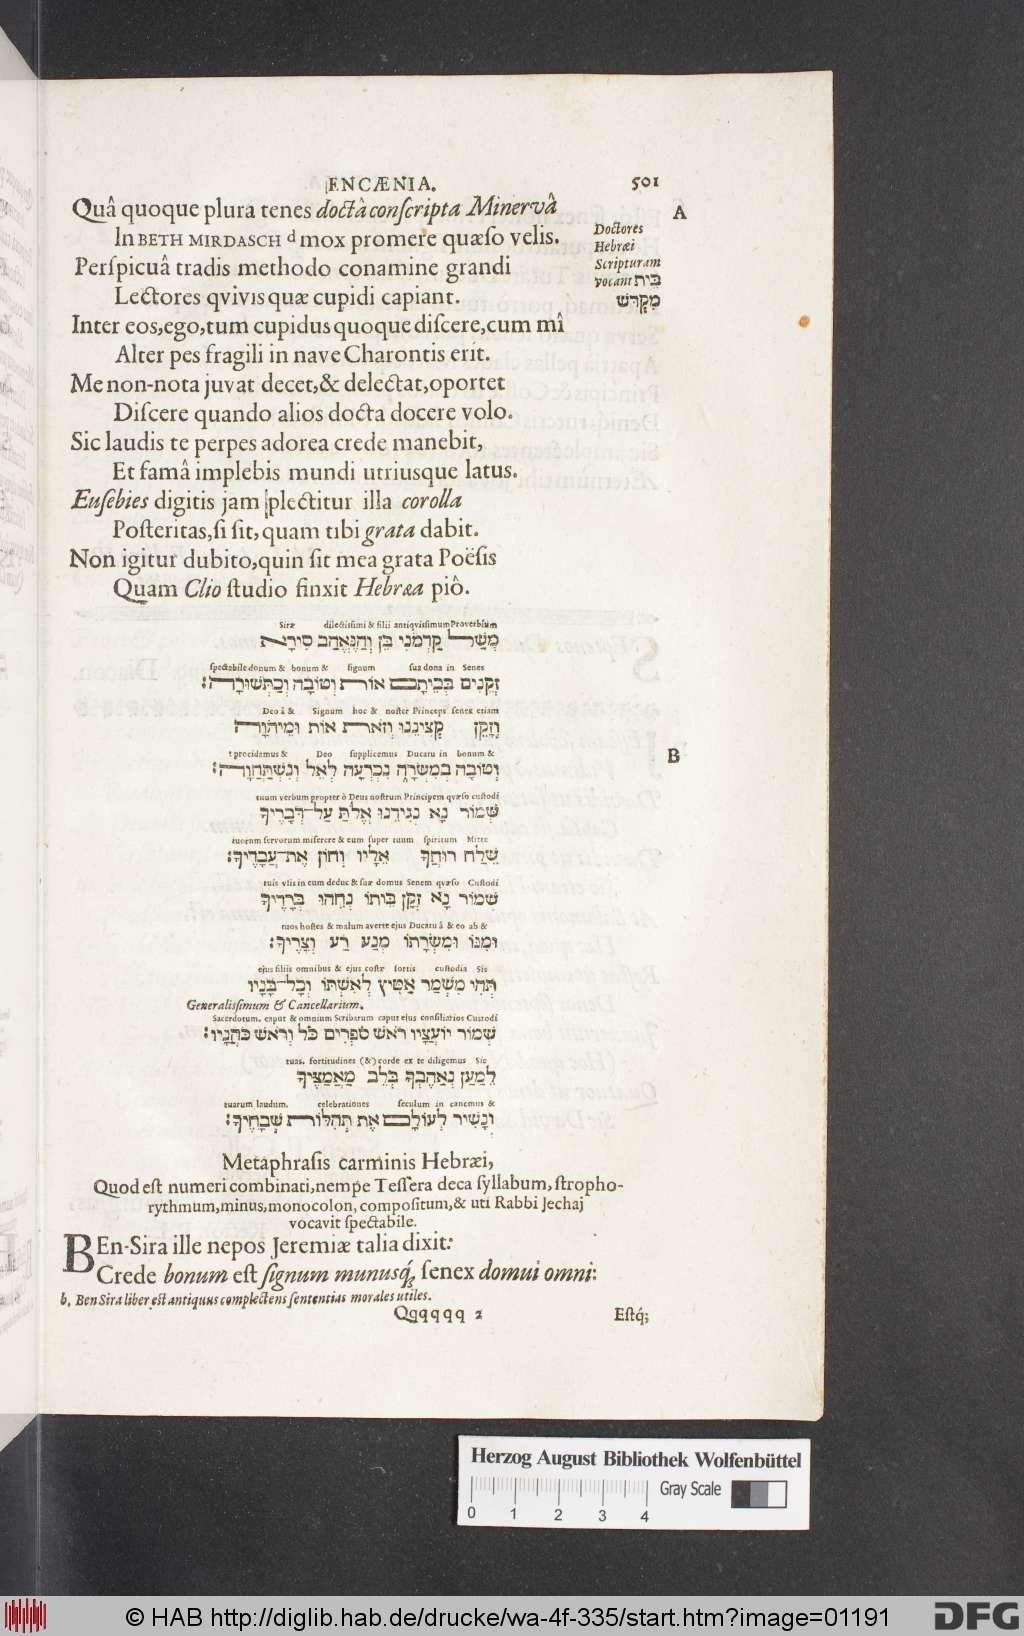 ENCÆNIA. 501
Quâ quoque plura tenes doctâ conſcripta Minervâ
A
In BETH MIRDASCH d mox promere quæſo velis.
Doctores
Hebræi
Scripturam
vocant בֵּית
מִקְדָּשׁ
Perſpicuâ tradis methodo conamine grandi
Lectores qvivis quæ cupidi capiant.
Inter eos, ego, tum cupidus quoque diſcere, cum mî
Alter pes fragili in nave Charontis erit.
Me non-nota juvat decet, & delectat, oportet
Diſcere quando alios docta docere volo.
Sic laudis te perpes adorea crede manebit,
Et famâ implebis mundi utriusque latus.
Euſebies digitis jam plectitur illa corolla
Poſteritas, ſi ſit, quam tibi grata dabit.
Non igitur dubito, quin ſit mea grata Poëſis
Quam Clio ſtudio finxit Hebræa piô.
Siræ dilectiſſimi & filii antiqviſſimum Proverbium
מְשַׁל קַדְמֹנִי בֵּן וְהַנֶּאֱהַב סִירָא
ſpectabile donum & bonum & ſignum ſua dona in Senes
זְקֵנִים בְּבֵיתָם אוֹת וְטוֹבָה וְכַתְּשׁוּרָה׃
Deo â & Signum hoc & noſter Princeps ſenex etiam
וְזָקֵן קְצִינֵנוּ וְזֹאת אוֹת וּמֵיהוָֹה
t procidamus & Deo ſupplicemus Ducatu in bonum &
B
וְטוֹבָה בְמִשְׂרָה נִכְרְעָה לְאֵל וְנִשְׁתַּחֲוֶה׃
tuum verbum propter ô Deus noſtrum Principem qvæſo cuſtodi
שְׁמוֹר נָא נְגִידֵנוּ אֱלֹהַּ עַל־דְּבָרֶיךָ
tuorum ſervorum miſerere & eum ſuper tuum ſpiritum Mitte
שְׁלַח רוּחֲךָ אֵלָיו וְחוֹן אֶת־עֲבָדֶיךָ׃
tuis viis in eum deduc & ſuæ domus Senem qvæſo Cuſtodi
שְׁמוֹר נָא זְקַן בֵּיתוֹ נְחֵהוּ בְּדָרְכֶיךָ
tuos hoſtes & malum averte ejus Ducatu â & eo ab &
וּמִנּוֹ וּמִשְׂרָתוֹ מְנַע רַע וְצָרֶיךָ׃
ejus filiis omnibus & ejus coſtæ fortis cuſtodia Sis
תְּהִי מִשְׁמַר אַמִּיץ לְאִשְׁתּוֹ וְכָל־בָּנָיו
Generaliſſimum & Cancellarium.
Sacerdotum. caput & omnium Scribarum caput ejus conſiliarios Cuſtodi
שְׁמוֹר יוֹעֲצָיו רֹאשׁ סֹפְרִים כֹּל וְרֹאשׁ כֹּהֲנָיו׃
tuas. fortitudines (&) corde ex te diligemus Sic
לְמַעַן נְאַהֶבְךָ בְּלֵב מַאֲמַצֶּיךָ
tuarum laudum. celebrationes ſeculum in canemus &
וְנָשִׁיר לְעוֹלָם אֶת תְּהִלּוֹת שְׁבָחֶיךָ׃
Metaphraſis carminis Hebræi,
Quod eſt numeri combinati, nempe Teſſera deca ſyllabum, ſtropho-
rythmum, minus, monocolon, compoſitum, & uti Rabbi Jechaj
vocavit ſpectabile.
BEn-Sira ille nepos Jeremiæ talia dixit:
Crede bonum eſt ſignum munusq́; ſenex domui omni:
b, Ben Sira liber eſt antiquus complectens ſententias morales utiles.
Qqqqqq 2 Eſtq́;
Herzog August Bibliothek Wolfenbüttel
Gray Scale
0 1 2 3 4
© HAB http://diglib.hab.de/drucke/wa-4f-335/start.htm?image=01191
DFG